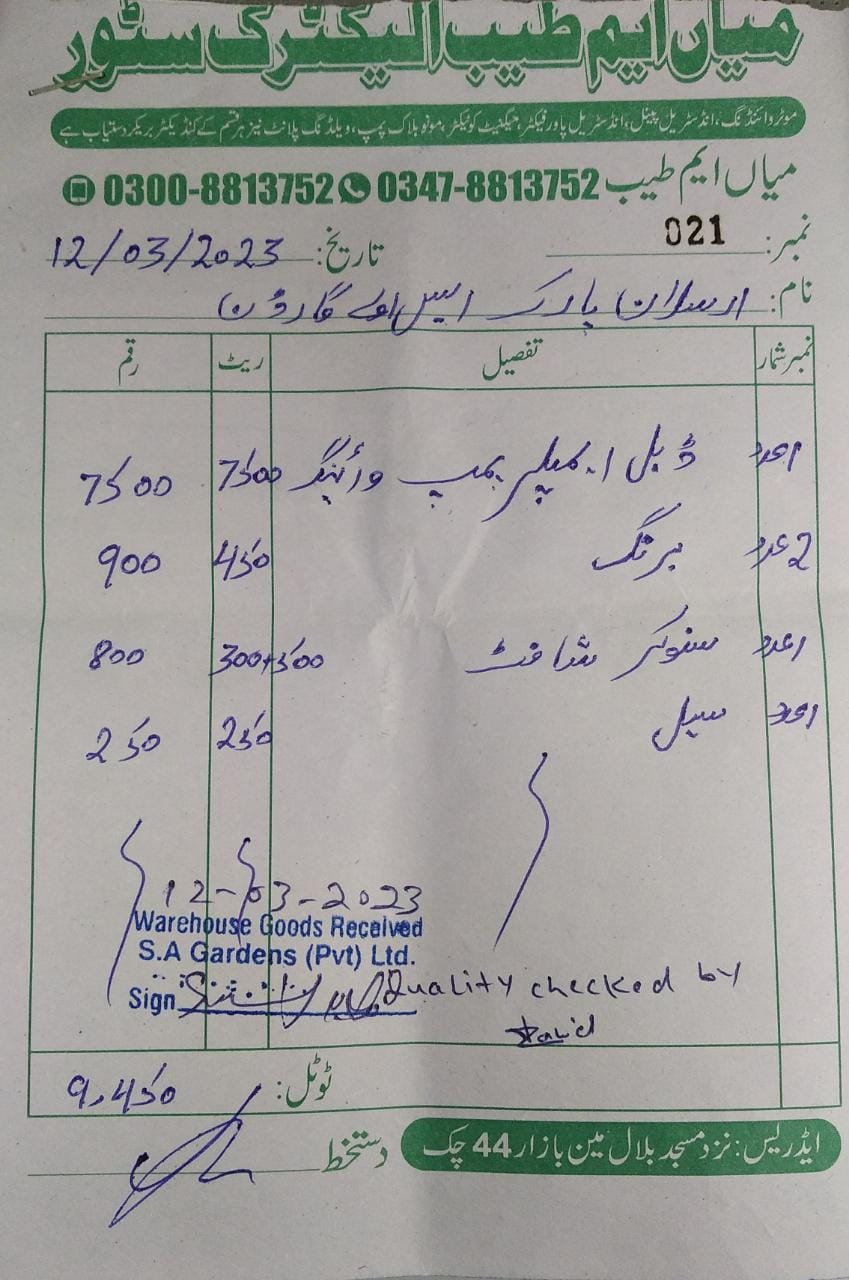 میاں ایم طیب الیکٹرک سٹور
موٹر وائنڈنگ، انڈسٹریل پینل، انڈسٹریل پاور فیکٹر، میگنیٹ کونیکٹر، مونو بلاک پمپ، ویلڈنگ پلانٹ نیز ہر قسم کے کنڈیکٹر بریکر دستیاب ہے
میاں ایم طیب 0347-8813752 0300-8813752
نمبر: 021 تاریخ: 12/03/2023
نام: ارسلان پارک ایس اے گارڈن
نمبر شمار تفصیل ریٹ رقم
1عدد ڈبل امپیلر پمپ وائنڈنگ 7500 7500
2عدد برنگ 450 900
1عدد شافٹ 300+500 800
1عدد سیل 250 250
12-03-2023
Warehouse Goods Received
S.A Gardens (Pvt) Ltd.
Sign
Quality checked by
ٹوٹل: 9,450
دستخط
ایڈریس: نزد مسجد بلال مین بازار 44 چک